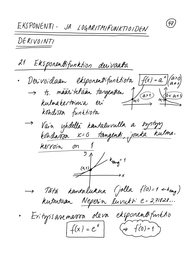 EKSPONENTTI- JA LOGARITMIFUNKTIOIDEN
DERIVOINTI
21 Eksponenttifunktion derivaatta
• Derivoidaan eksponenttifunktiota f(x)=a^x
→ määritetään tangentin
kulmakertoimia eri
kohdissa funktiota
→ Vain yhdellä kantaluvulla a pystyy
kohdassa x=0 tangentti, jonka kulma-
kerroin on 1
→ Tätä kantalukua (jolla f'(0)=1)
kutsutaan Neperin luvuksi e=2,71828...
• Erityisasemassa oleva eksponenttifunktio
f(x)=e^x → f'(0)=1